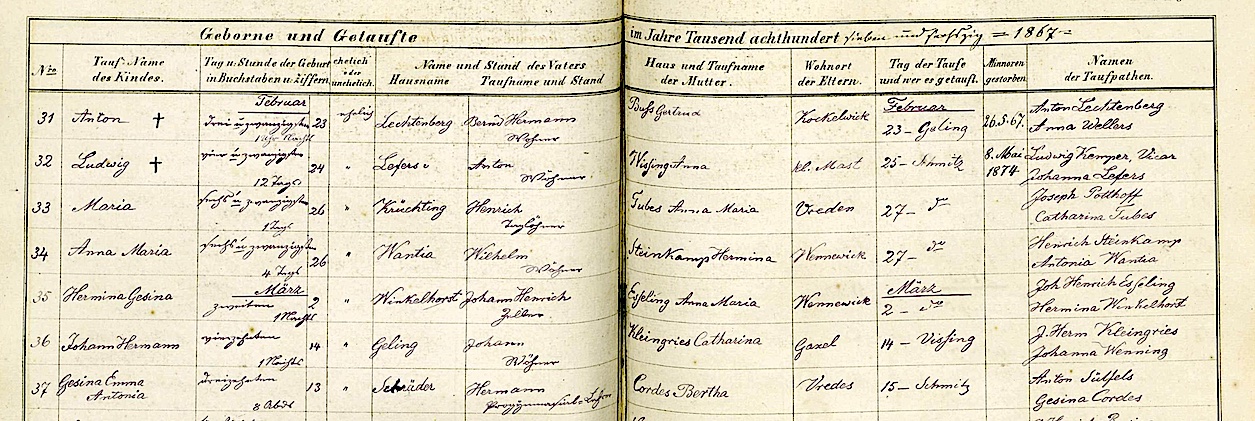 Geborne und Getaufte im Jahre Tausend achthundert sieben und sechszig = 1867 =
Nro Tauf-Name des Kindes. Tag u. Stunde der Geburt in Buchstaben u. Ziffern ehelich oder unehelich. Name und Stand des Vaters Hausname Taufname und Stand Haus und Taufname der Mutter. Wohnort der Eltern. Tag der Taufe und wer es getauft. Minnoren gestorben. Namen der Taufpathen.
Februar Februar
31 Anton † drei u zwanzigsten 23 ehelig Lechtenberg Bernd Hermann Wöhner Buss Gertrud Kockelwick 23 – Geling 26.5.67. Anton Lechtenberg Anna Wellers
32 Ludwig † vier u zwanzigsten 12 Tags 24 " Lefers Anton Wöhner Wissing Anna kl. Mast 25 – Schmitz 8. Mai 1874 Ludwig Kemper, Vicar Johanna Lefers
33 Maria sechs u zwanzigsten 1 Tags 26 " Krüchting Henrich Taglöhner Tubes Anna Maria Vreden 27 – do Joseph Potthoff Catharina Tubes
34 Anna Maria sechs u zwanzigsten 4 Tags 26 " Wantia Wilhelm Wöhner Steinkamp Hermina Wennewick 27 – do Henrich Steinkamp Antonia Wantia
März März
35 Hermina Gesina zweiten 1 Nachts 2 " Winkelhorst Johann Henrich Zeller Esseling Anna Maria Wennewick 2 – do Joh Henrich Esseling Hermina Winkelhorst
36 Johann Hermann vierzehnten 1 Nachts 14 " Geling Johann Wöhner Kleingries Catharina Gaxel 14 – Vissing J. Herm Kleingries Johanna Wenning
37 Gesina Emma Antonia dreizehnten 8 Abds 13 " Schräder Hermann Cordes Bertha Vredes 15 – Schmitz Anton Sülfels Gesina Cordes